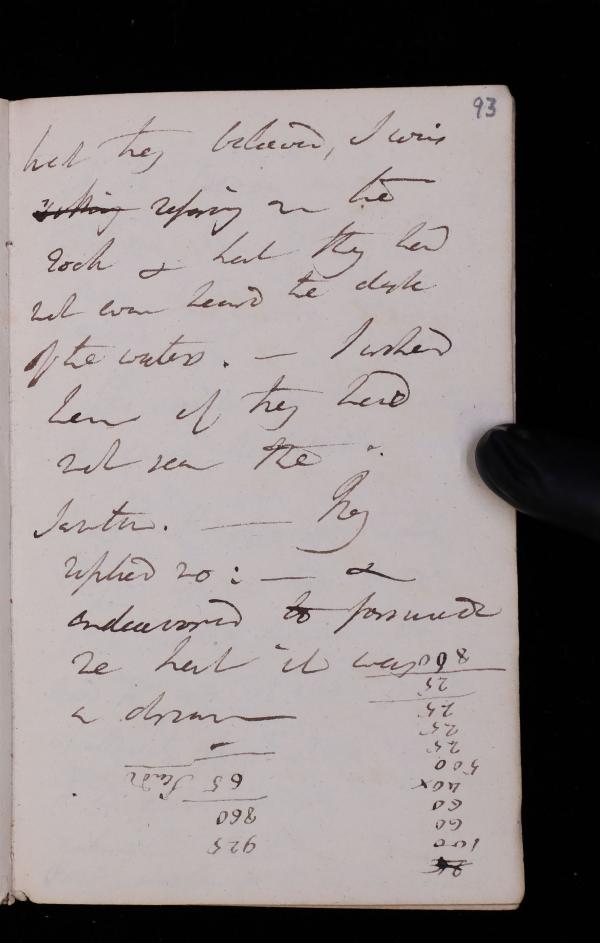 93
that they believed, I was
reposing on the
rock & that they had
not even heard the dash
of the waters. — I asked
them if they had
not seen the
. — They
replied no: — &
endeavored to persuade
me that it was
a dream
860
25
25
25
25
500
40x
60
60
100
65
860
925